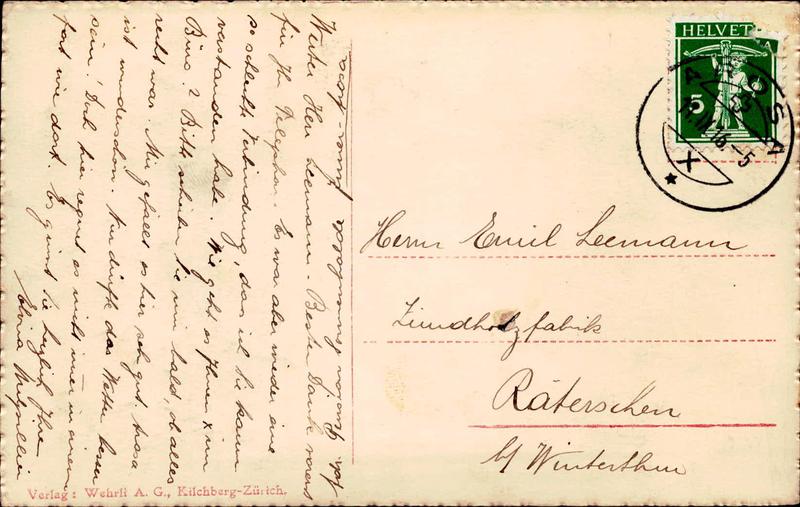 HELVETIA
5
AROSA
IX.16.-5
X
Werter Herr Leemann. Besten Dank vorerst
für Ihr Telephon. Es war aber wieder eine
so schlechte Verbindung, dass ich Sie kaum
verstanden habe. Wie geht es Ihnen & im
Büro? Bitte schreiben Sie mir bald, ob alles
recht war. Mir gefällt es hier sehr gut. Arosa
ist wunderschön. Nur dürfte das Wetter besser
sein! Doch hier regnet es nicht immer in einem
fort wie dort. Es grüsst Sie herzlich Ihre
Herrn Emil Leemann
Zündholzfabrik
Räterschen
b/ Winterthur
Verlag: Wehrli A. G., Kilchberg-Zürich.